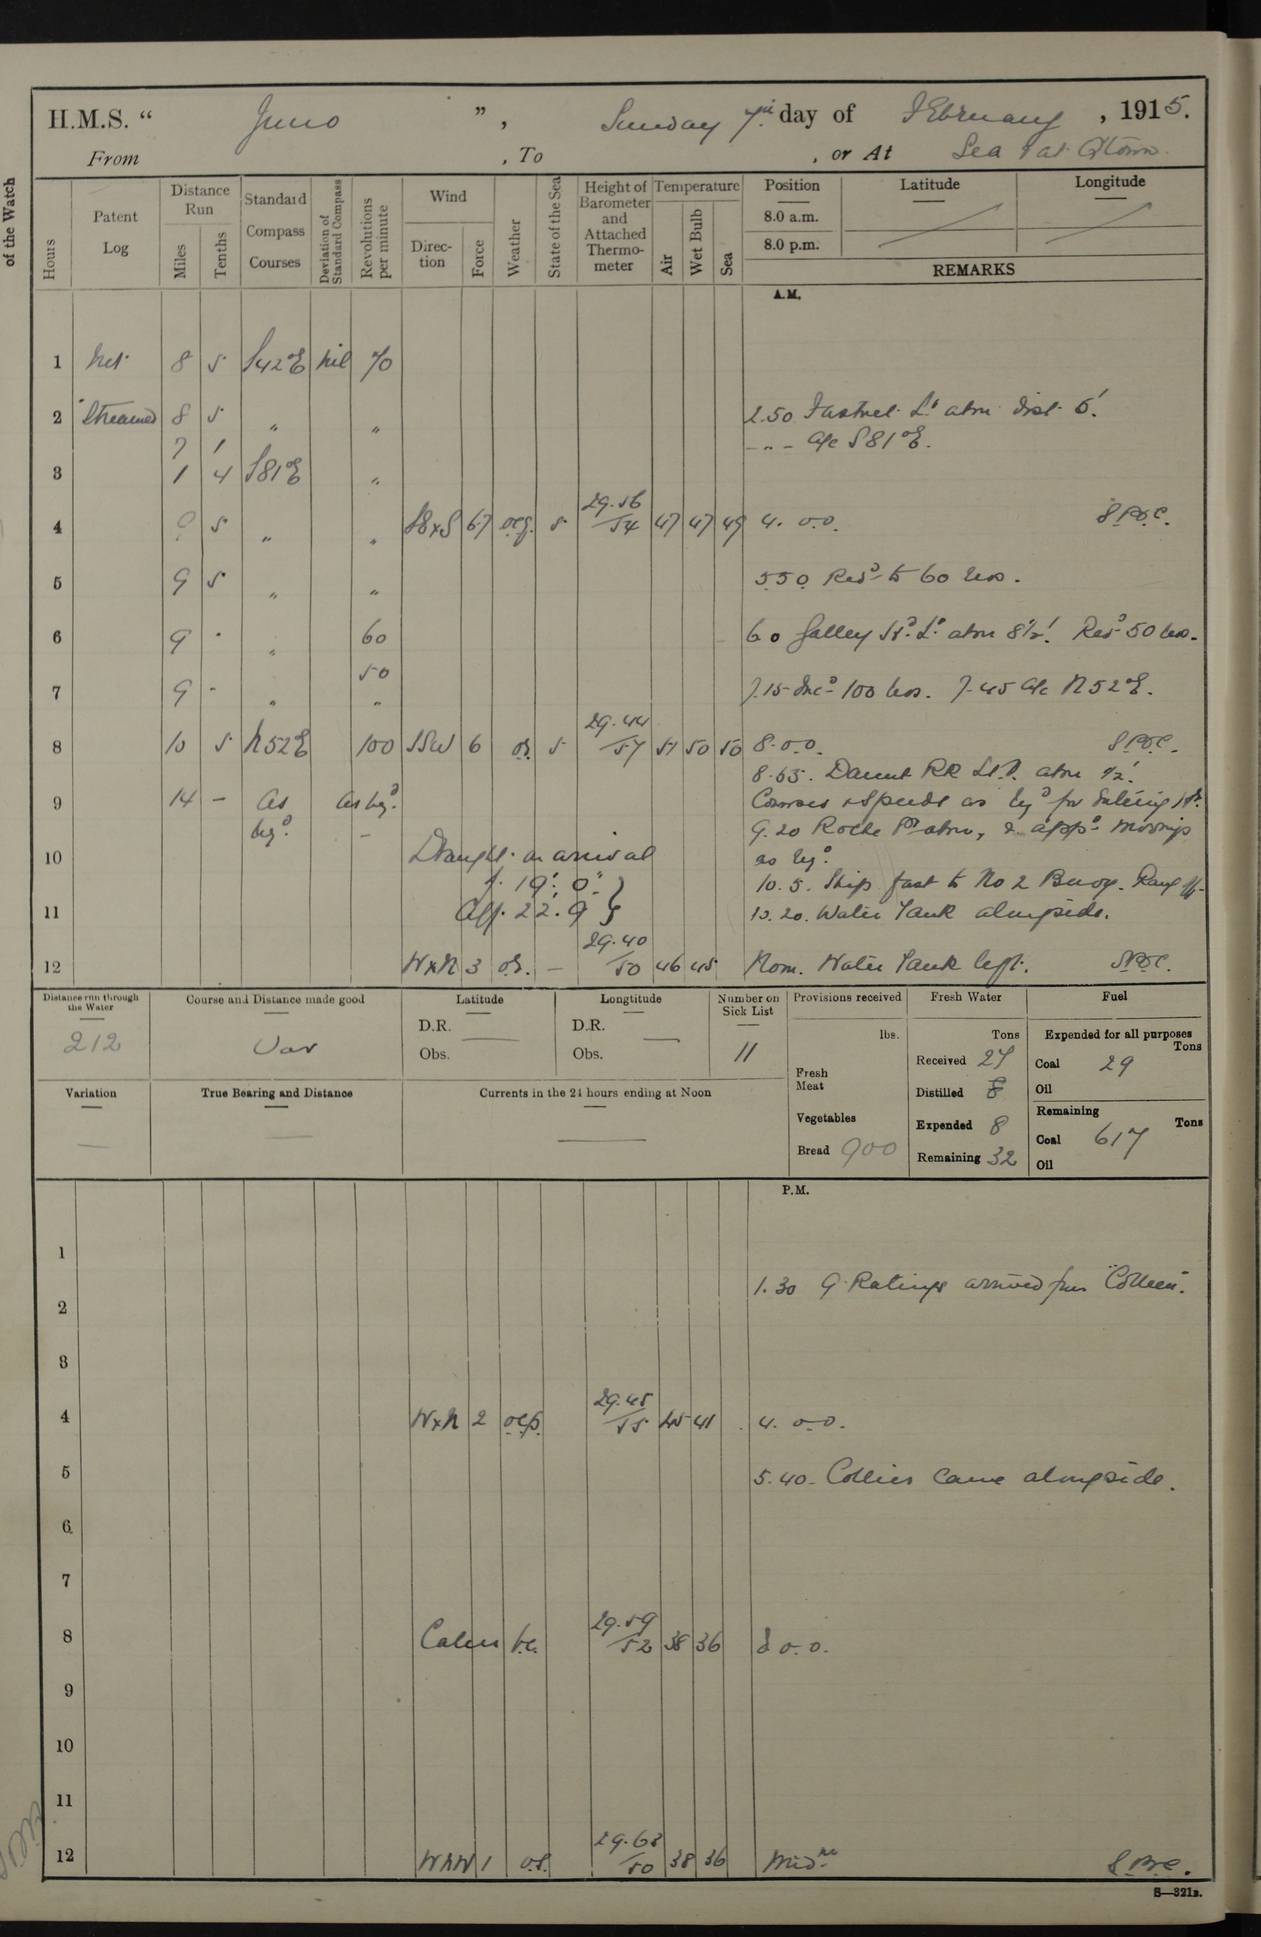 H.M.S. “ Juno ” , Sunday 7th day of February , 1915.
From , To , or At Sea & at Qtown
of the Watch
Hours Patent Log Distance Run Miles Tenths Standard Compass Courses Deviation of Standard Compass Revolutions per minute Wind Direction Force Weather State of the Sea Height of Barometer and Attached Thermometer Temperature Air Wet Bulb Sea Position Latitude Longitude
8.0 a.m.
8.0 p.m.
REMARKS
A.M.
1 Not 8 5 S42°E Nil 70
2 Streamed 8 5 " " 2.50 Fastnet Lt abm dist 6'.
7 1 - " - A/c S81°E.
3 1 4 S81°E "
4 9 5 " " SExS 6.7 5 29.56/54 47 47 49 4. 0.0.
5 9 5 " " 5.50 Redd to 60 revs.
6 9 - " 60 6.0 Galley Hd Lt abm 8½'. Redd 50 revs.
50
7 9 - " " 7.15 Incd 100 revs. 7.45 A/c N52°E.
8 10 5 N52E 100 SSW 6 or. 5 29.44/57 51 50 50 8.0.0.
8.53. Daunt RK Lt.V. abm ½'.
9 14 - As req? As req? Courses & Speeds as reqd for entering Hr.
9.20 Roche Pt abm, & appd moorings
10 Draught on arrival as reqd.
f. 19'. 0" 10.5. Ship fast to No 2 Buoy.
11 Aff. 22. 9 10.20. Water Tank alongside.
12 WxN 3 or. - 29.40/50 46 45 Noon. Water Tank left.
Distance run through the Water Course and Distance made good Latitude Longtitude Number on Sick List Provisions received Fresh Water Fuel
212 Var D.R. D.R. 11 lbs. Tons Expended for all purposes Tons
Obs. Obs. Fresh Meat Received 27 Coal 29
Variation True Bearing and Distance Currents in the 24 hours ending at Noon Distilled 8 Oil
Vegetables Expended 8 Remaining Tons
Bread 900 Remaining 32 Coal 617
Oil
P.M.
1
1.30 9 Ratings arrived from "Colleen".
2
3
4 WxN 2 ocp. 29.45/55 45 41 4. 0.0.
5 5.40. Collier came alongside.
6
7
8 Calm bc. 29.59/52 38 36 8 0.0.
9
10
11
12 WNW 1 29.63/50 38 36 Midnt
S—321B.